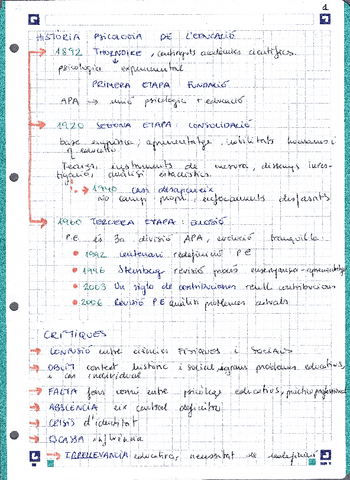 1
HISTÒRIA PSICOLOGIA DE L'EDUCACIÓ
1892 THORNDIKE, continguts acadèmics científics.
psicologia experimental
PRIMERA ETAPA FUNDACIÓ
APA → unió psicologia + educació
1920 SEGONA ETAPA: CONSOLIDACIÓ
base empírica, aprenentatge, habilitats humanes i
educatiu
Tècniques, instruments de mesura, dissenys inves-
tigació, anàlisi estadística
1940 casi desapareix
No camp propi, enfocaments desfasats
1960 TERCERA ETAPA: ECLOSIÓ
P.E és 3a divisió APA, evolució tranquil·la
1992 centenari redefinició P.E
1996 Steinberg revisió procés ensenyança-aprenentatge
2003 Un siglo de contribuciones recull contribucions
2006 Revisió P.E anàlisi problemes actuals
CRÍTIQUES
→ CONFUSIÓ entre ciències FÍSIQUES i SOCIALS
→ OBLIT context històric i social, alguns problemes educatius,
i cas individual
→ FALTA entre psicòlegs educatius,
→ ABSÈNCIA eix central definitiu
→ CRISIS d'identitat
→ ESCASSA influència
→ IRRELLEVANCIA educativa, necessitat de redefinició